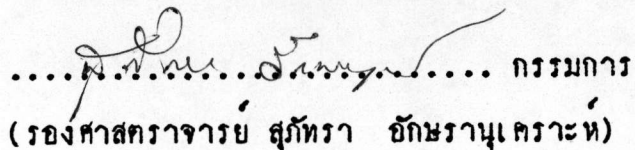 .................................... กรรมการ
(รองศาสตราจารย์ สุภัทรา อักษรานุเคราะห์)